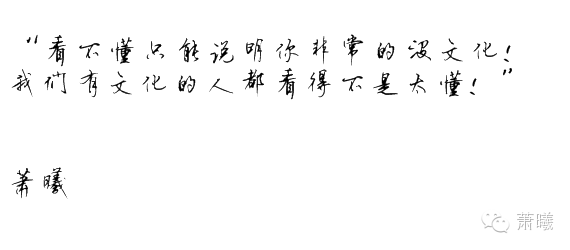 “看不懂只能说明你非常的没文化！
我们有文化的人都看得不是太懂！”
萧曦
萧曦